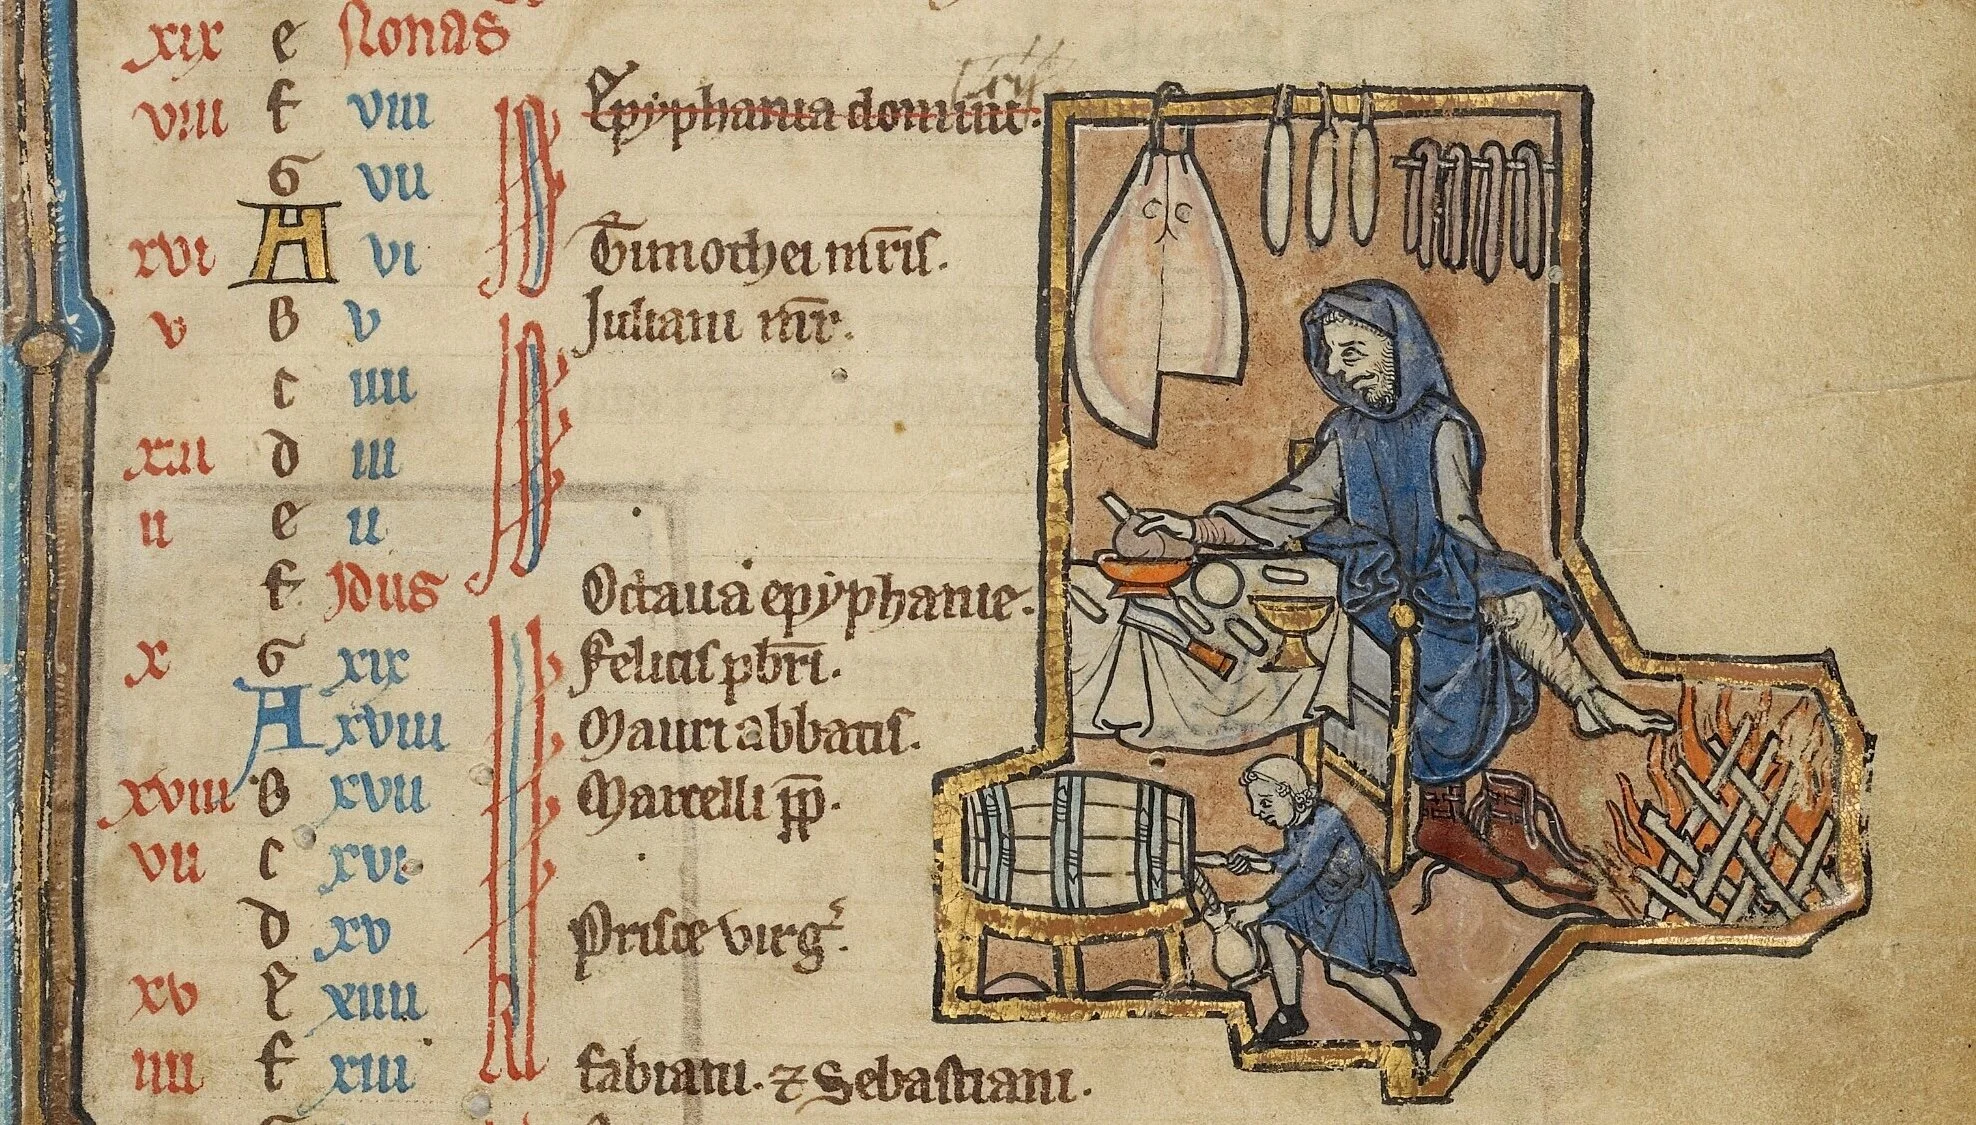 xix e Nonas
viii f viii Epyphania domini.
G vii
xvi A vi Timothei mr̄is.
v B v Juliani mr̄.
c iiii
xii d iii
ii e ii
f Idus Octaua epyphanie.
x G xix Felicis pb̄ri.
A xviii Mauri abbatis.
xviii B xvii Marcelli pp̄.
vii c xvi
d xv Prisce virg̾.
xv e xiiii
iiii f xiii fabiani. ⁊ Sebastiani.